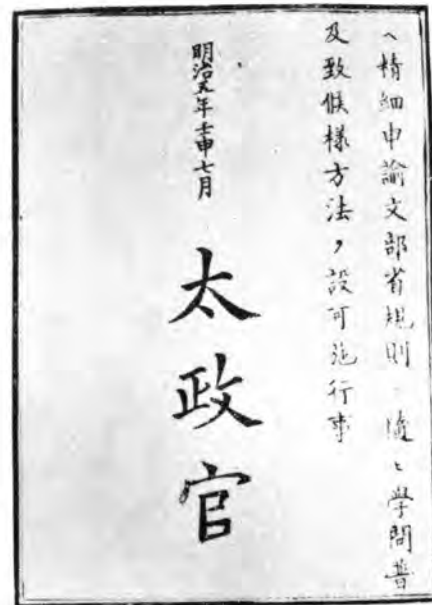 ヘ精細申諭文部省規則ニ随ヒ學問普
及致候様方法ヲ設可施行事
明治五年壬申七月
太政官